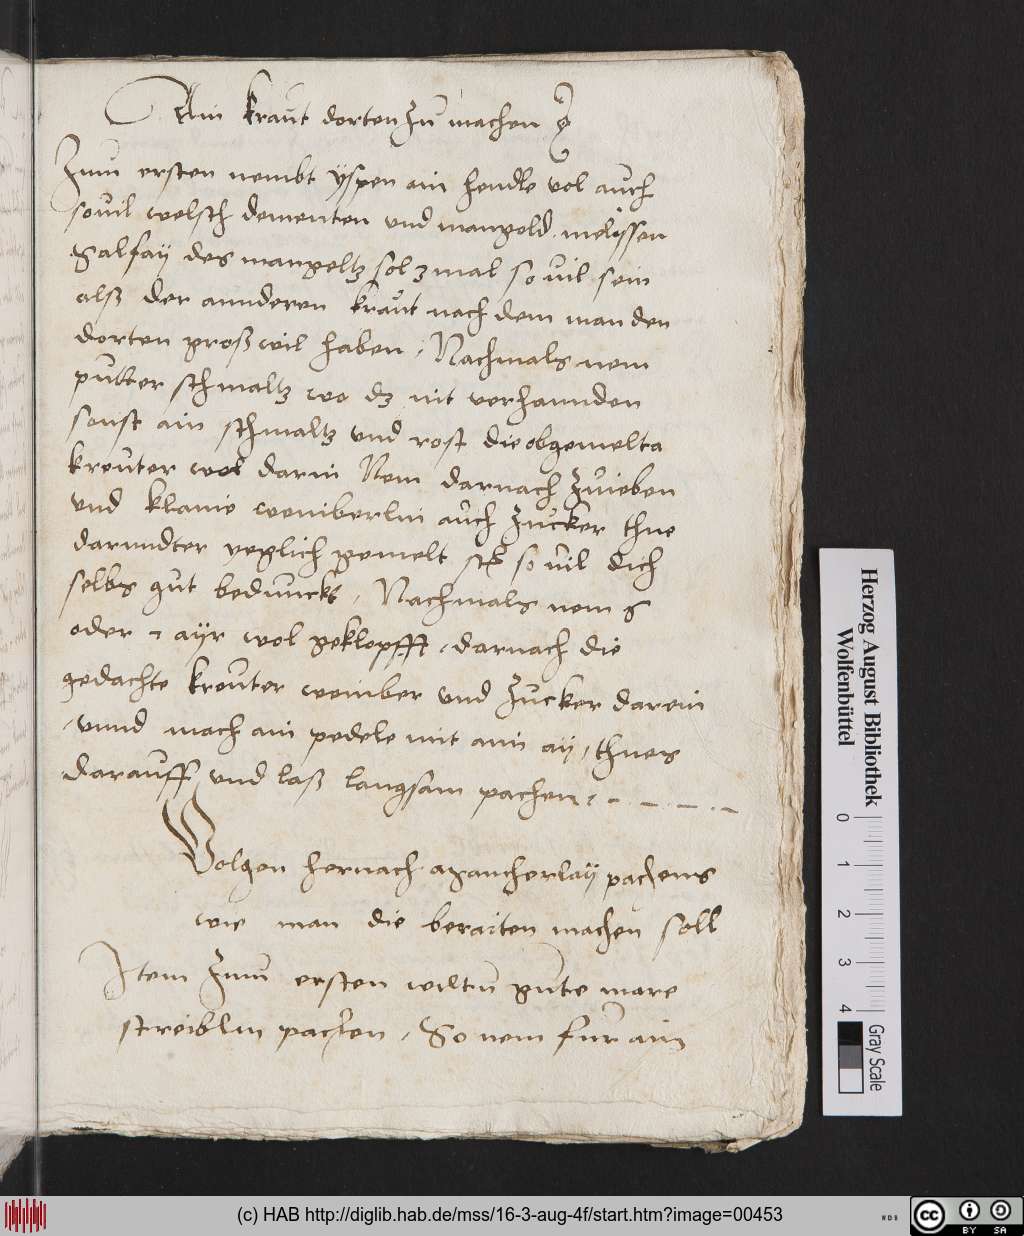 Ain kraut dorten zu machen
Zum ersten nembt yspen ain hendle vol auch
souil welsch dementen vnd mangold melyssen
Salfay des mangoltz sol 3 mal so vil sein
alß der annderen kraut nach dem man den
dorten groß wil haben, Nachmals nem
putter schmaltz wo dz nit verhannden
sonst ain schmaltz vnd rost die obgemelta
kreuter wol darin Nem darnach zwieben
vnd klanie weinberlin auch zucker thue
darundter yeglich gemelt so vil dich
selbs gut bedunckt, Nachmals nem 6
oder 7 ayr wol geklopfft, darnach die
gedachte kreuter weinber vnd zucker darein
, vnnd mach ain pedele mit ain ay, thues
darauff vnd laß langsam pachen,
Volgen hernach mancherlay pachens
wie man die beraiten machen soll
Item zum ersten wiltu gute mare
streiblin pachen, So nem fur ain
Herzog August Bibliothek
Wolfenbüttel
0 1 2 3 4
Gray Scale
(c) HAB http://diglib.hab.de/mss/16-3-aug-4f/start.htm?image=00453
WDB
cc BY SA